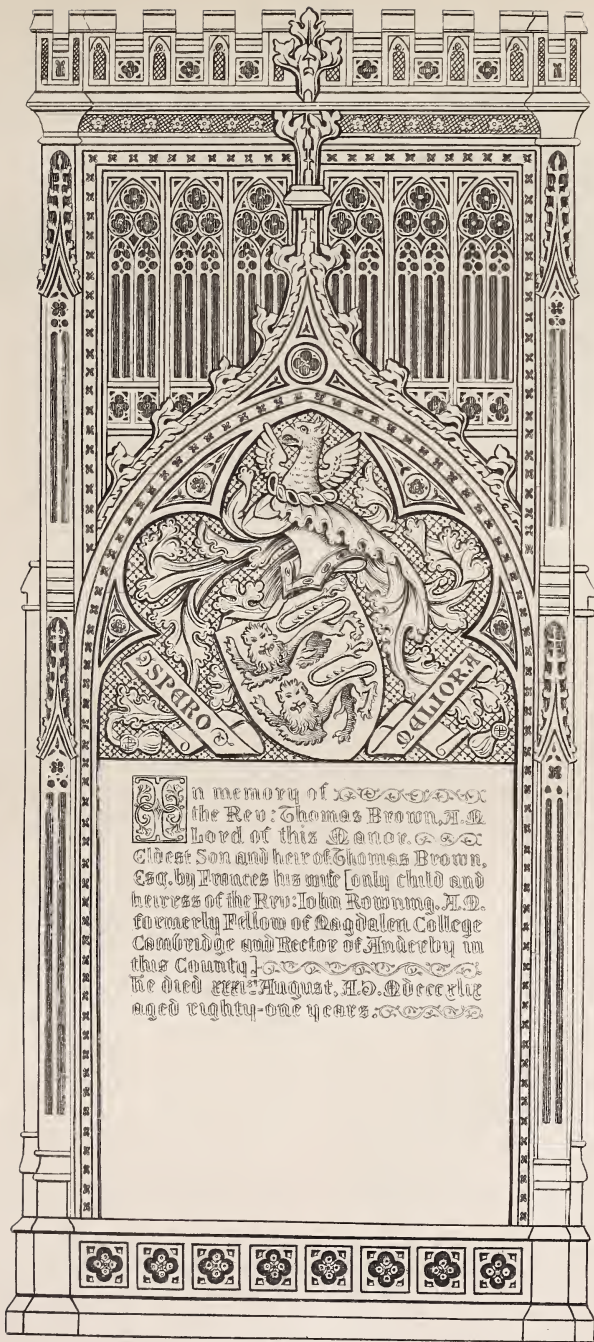 SPERO
MELIORA
In memory of
the Rev: Thomas Brown, A.M.
Lord of this Manor.
Eldest Son and heir of Thomas Brown,
Esq. by Frances his wife [only child and
heiress of the Rev: Iohn Rowning. A.M.
formerly Fellow of Magdalen College
Cambridge and Rector of Anderby in
this County]
He died xxxist August, A.D. Mdcccxlix
aged eighty-one years.